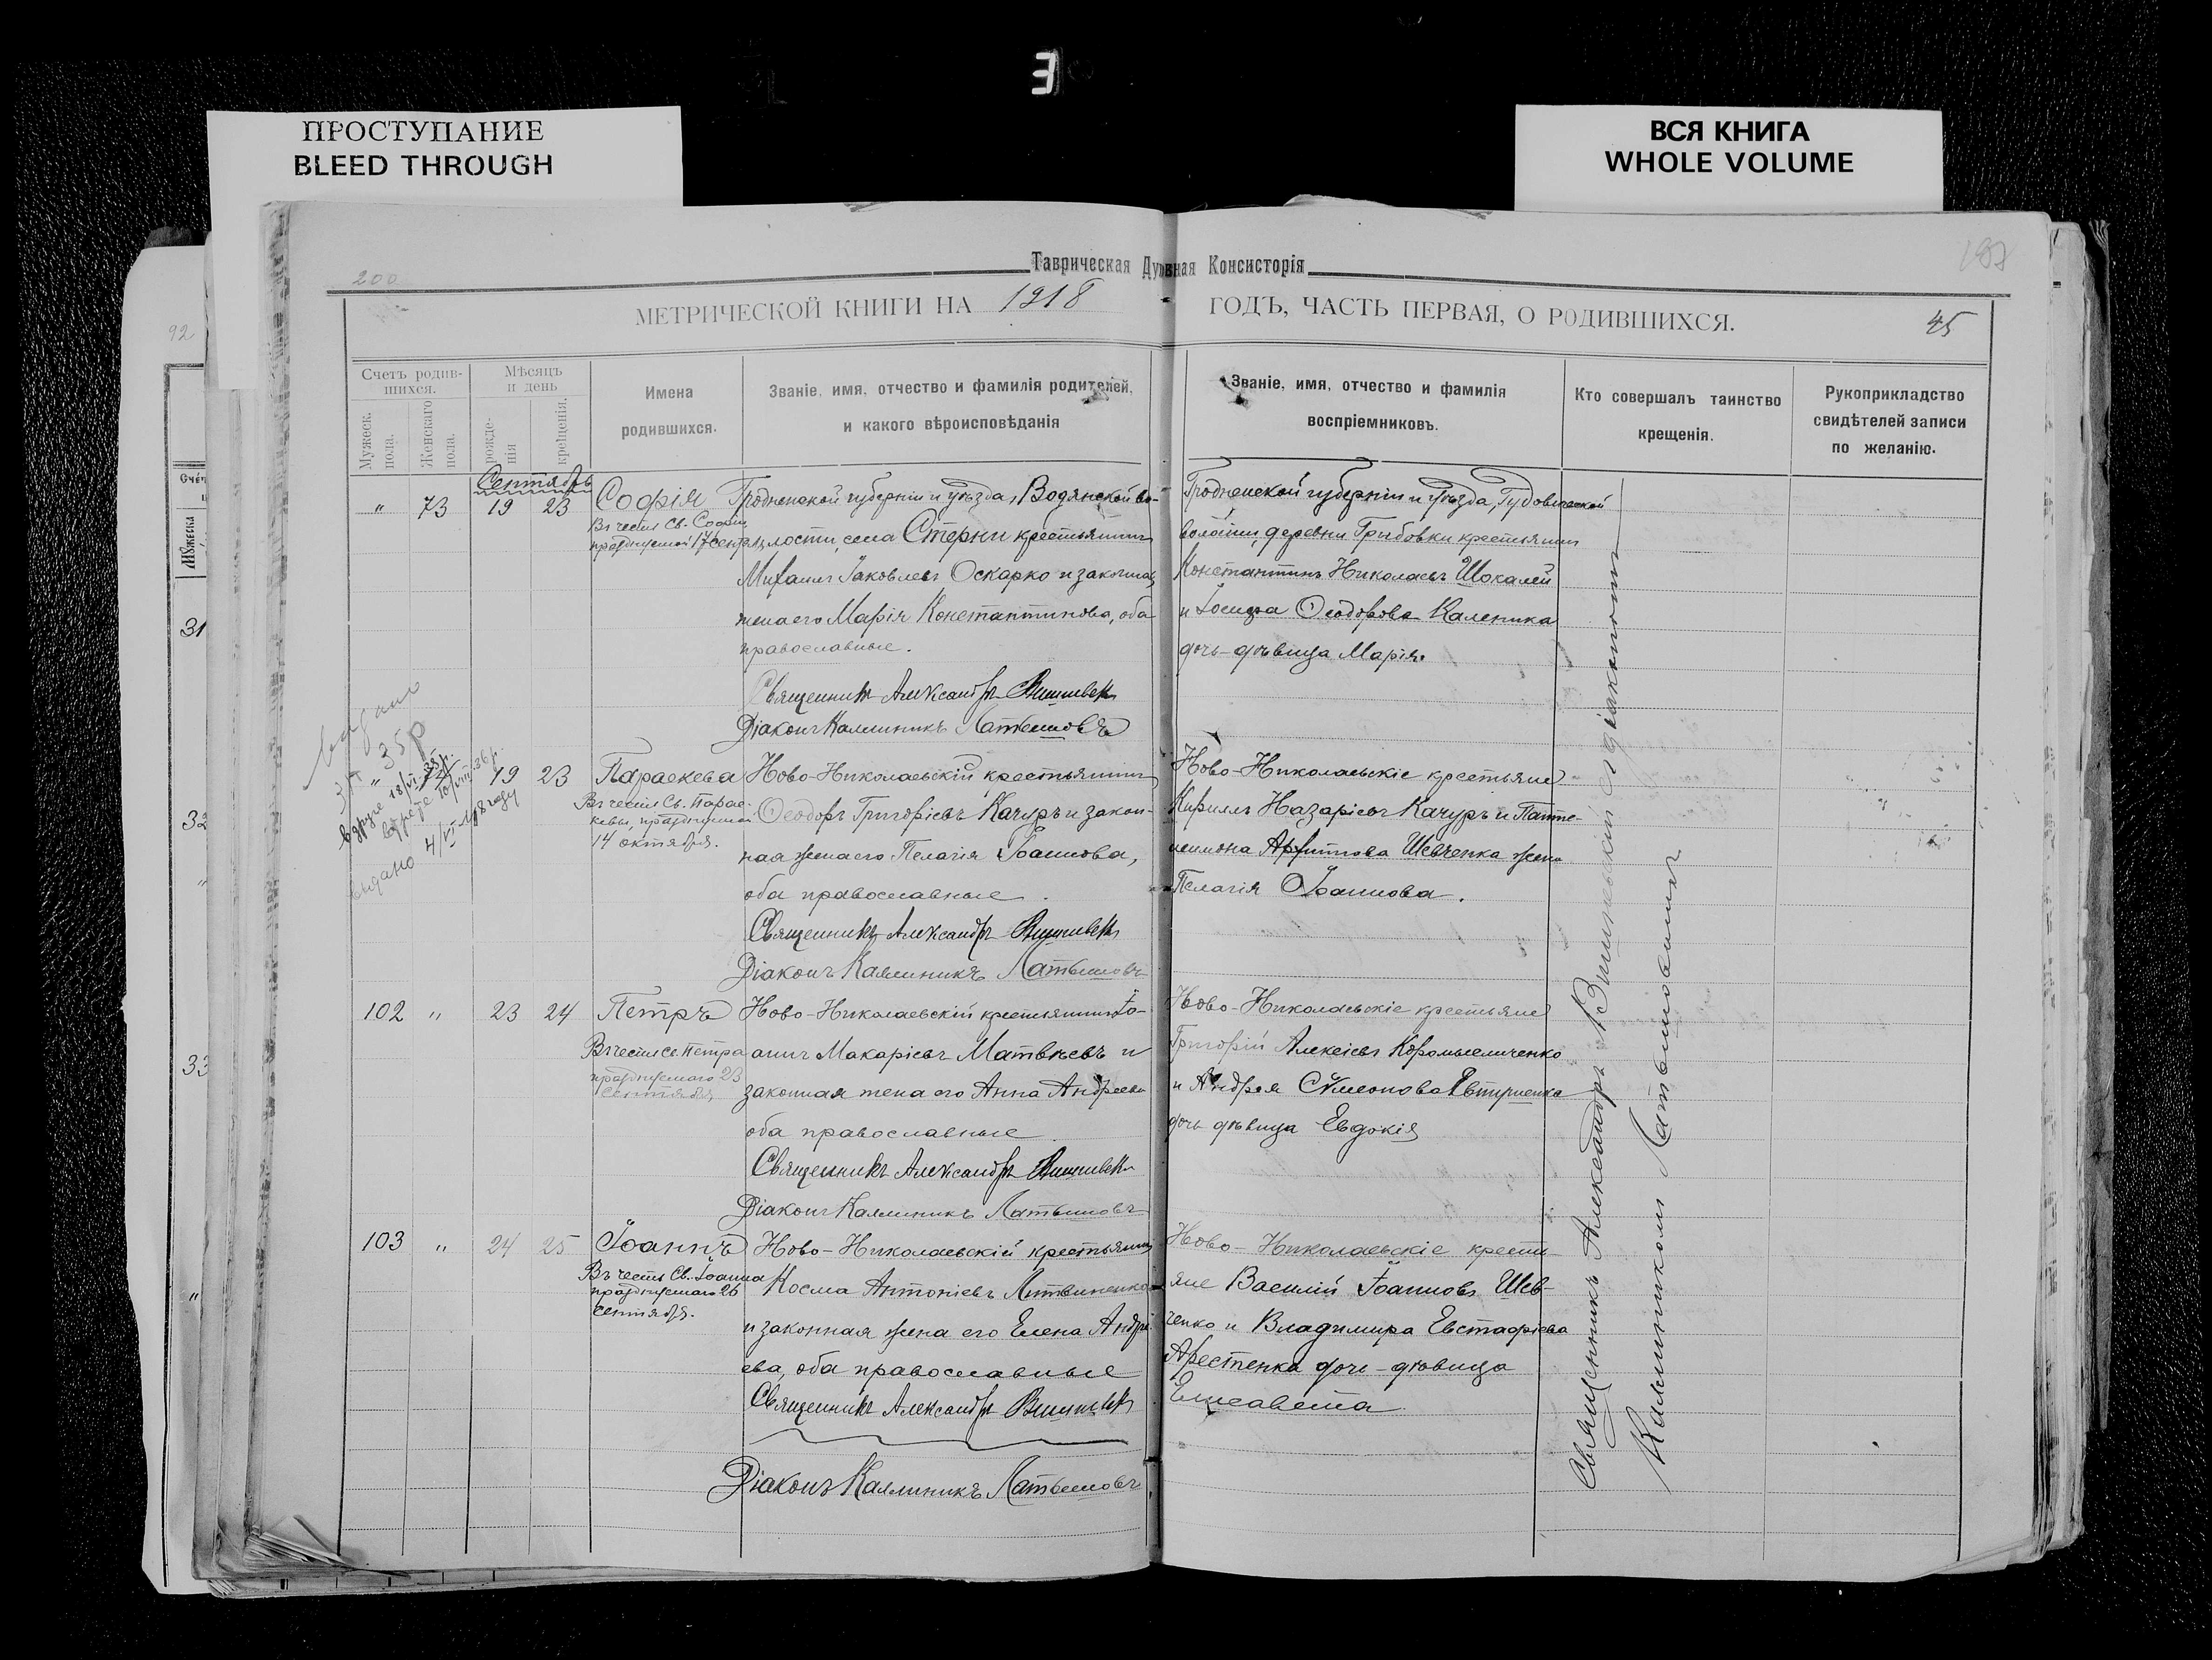 ПРОСТУПАНИЕ
BLEED THROUGH
ВСЯ КНИГА
WHOLE VOLUME
Таврическая Духовная Консисторія
200
МЕТРИЧЕСКОЙ КНИГИ НА 1918 ГОДЪ, ЧАСТЬ ПЕРВАЯ, О РОДИВШИХСЯ.
45
92
Счетъ родив-
шихся.
Мѣсяцъ
и день
Мужеск.
пола.
Женскаго
пола.
рожде-
нія
крещенія.
Имена
родившихся.
Званіе, имя, отчество и фамилія родителей,
и какого вѣроисповѣданія
Званіе, имя, отчество и фамилія
воспріемниковъ.
Кто совершалъ таинство
крещенія.
Рукоприкладство
свидѣтелей записи
по желанію.
Сентябрь
" 73 19 23
Софія
Въ честь Св. Софіи,
празднуемой 17 сент.
Гродненской губерніи и уѣзда, Водянской во-
лости, села Стерни крестьянинъ
Михаилъ Іаковлевъ Оскарко и законная
жена его Марія Константинова, оба
православные.
Священникъ Александръ
Діаконъ Каллиникъ Латышовъ
Гродненской губерніи и уѣзда,
волости, деревни Грибовки крестьянинъ
Константинъ Николаевъ Шокалей
и Іосифа Ѳеодорова Каленика
дочь-дѣвица Марія.
" 74 19 23
Параскева
Въ честь Св. Парас-
кевы, празднуемой
14 октября.
Ново-Николаевскій крестьянинъ
Ѳеодоръ Григоріевъ Качуръ и закон-
ная жена его Пелагія Іоаннова,
оба православные.
Священникъ Александръ
Діаконъ Каллиникъ Латышовъ
Ново-Николаевскіе крестьяне
Кириллъ Назаріевъ Качуръ и Панте-
леимона Архипова Шевченка жена
Пелагія Іоаннова.
выдано 4/VI-1948 году
35 р
102 " 23 24
Петръ
Въ честь св. Петра
празднуемаго 23
сентября
Ново-Николаевскій крестьянинъ Іо-
аннъ Макаріевъ Матвѣевъ и
законная жена его Анна Андреева
оба православные.
Священникъ Александръ
Діаконъ Каллиникъ Латышовъ
Ново-Николаевскіе крестьяне
Григорій Алексіевъ Коромысличенко
и Андрея Симеонова
дочь дѣвица Евдокія
103 " 24 25
Іоаннъ
Въ честь Св. Іоанна
празднуемаго 26
сентября.
Ново-Николаевскій крестьянинъ
Косма Антоніевъ Литвиненко
и законная жена его Елена Андре-
ева, оба православные
Священникъ Александръ
Діаконъ Каллиникъ Латышовъ
Ново-Николаевскіе кресть-
яне Василій Іоанновъ Шев-
ченко и Владимира Евстафіева
Арестенка дочь-дѣвица
Елисавета.
Священникъ Александръ съ діакономъ
Каллиникомъ Латышовымъ
31
32
33